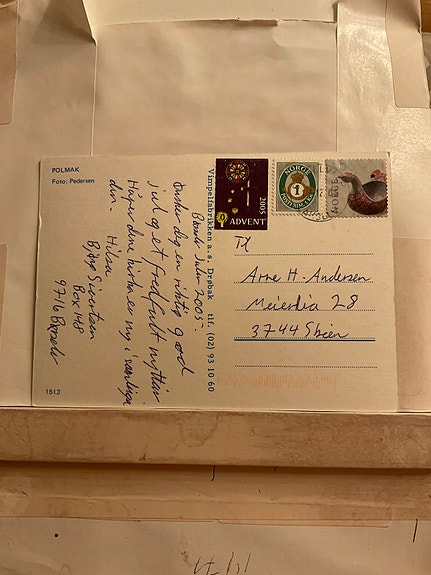 POLMAK
Foto: Pedersen
Børselv Julen 2005.
Ønsker deg en riktig god
jul og et fredfullt nyttår
Håper dine
din. Hilsen
Bjørg Sivertsen
Box 148
9716 Børselv
1513
Vimpelfabrikken a.s. Drøbak tlf. (02) 93 10 60
2005
ADVENT
NORGE
1
NORGE
Til
Arne H. Andersen
Meierlia 28
3744 Skien